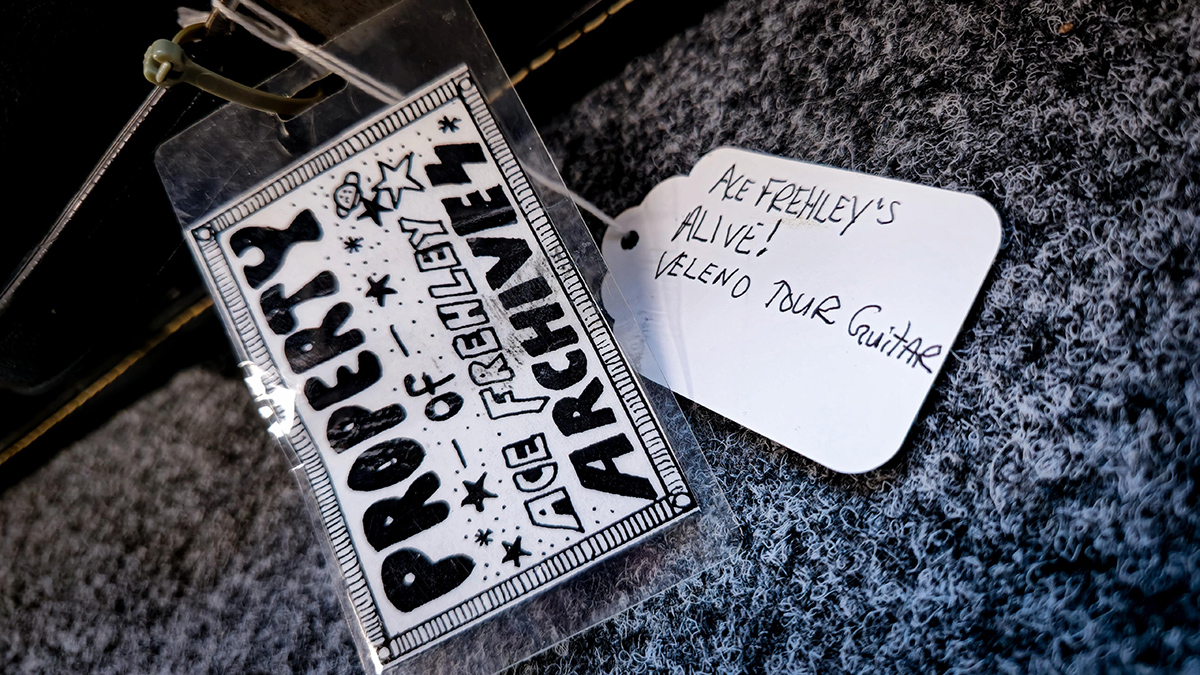 PROPERTY
- OF -
ACE FREHLEY
ARCHIVES
ACE FREHLEY'S
ALIVE!
VELENO TOUR GuitAR